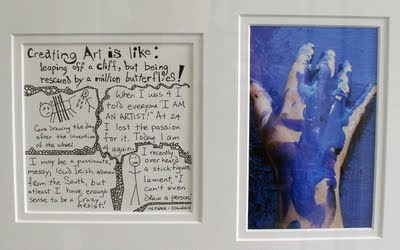 Creating Art is like:
leaping off a cliff, but being
rescued by a million butterflies!
Cave Drawing the day
after the invention
of the wheel
When I was 4 I
told everyone "I AM
AN ARTIST!" At 24
I lost the passion
for it. Today I am
4 again.
I may be a passionate,
messy, loud beish woman
from the South, but
atleast I have enough
sense to be a Crazy
Artist!
I recently
over heard
a stick figure
lament, "I
can't even
draw a person."